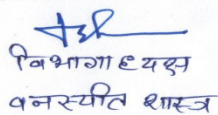 विभागाध्यक्ष
वनस्पति शास्त्र